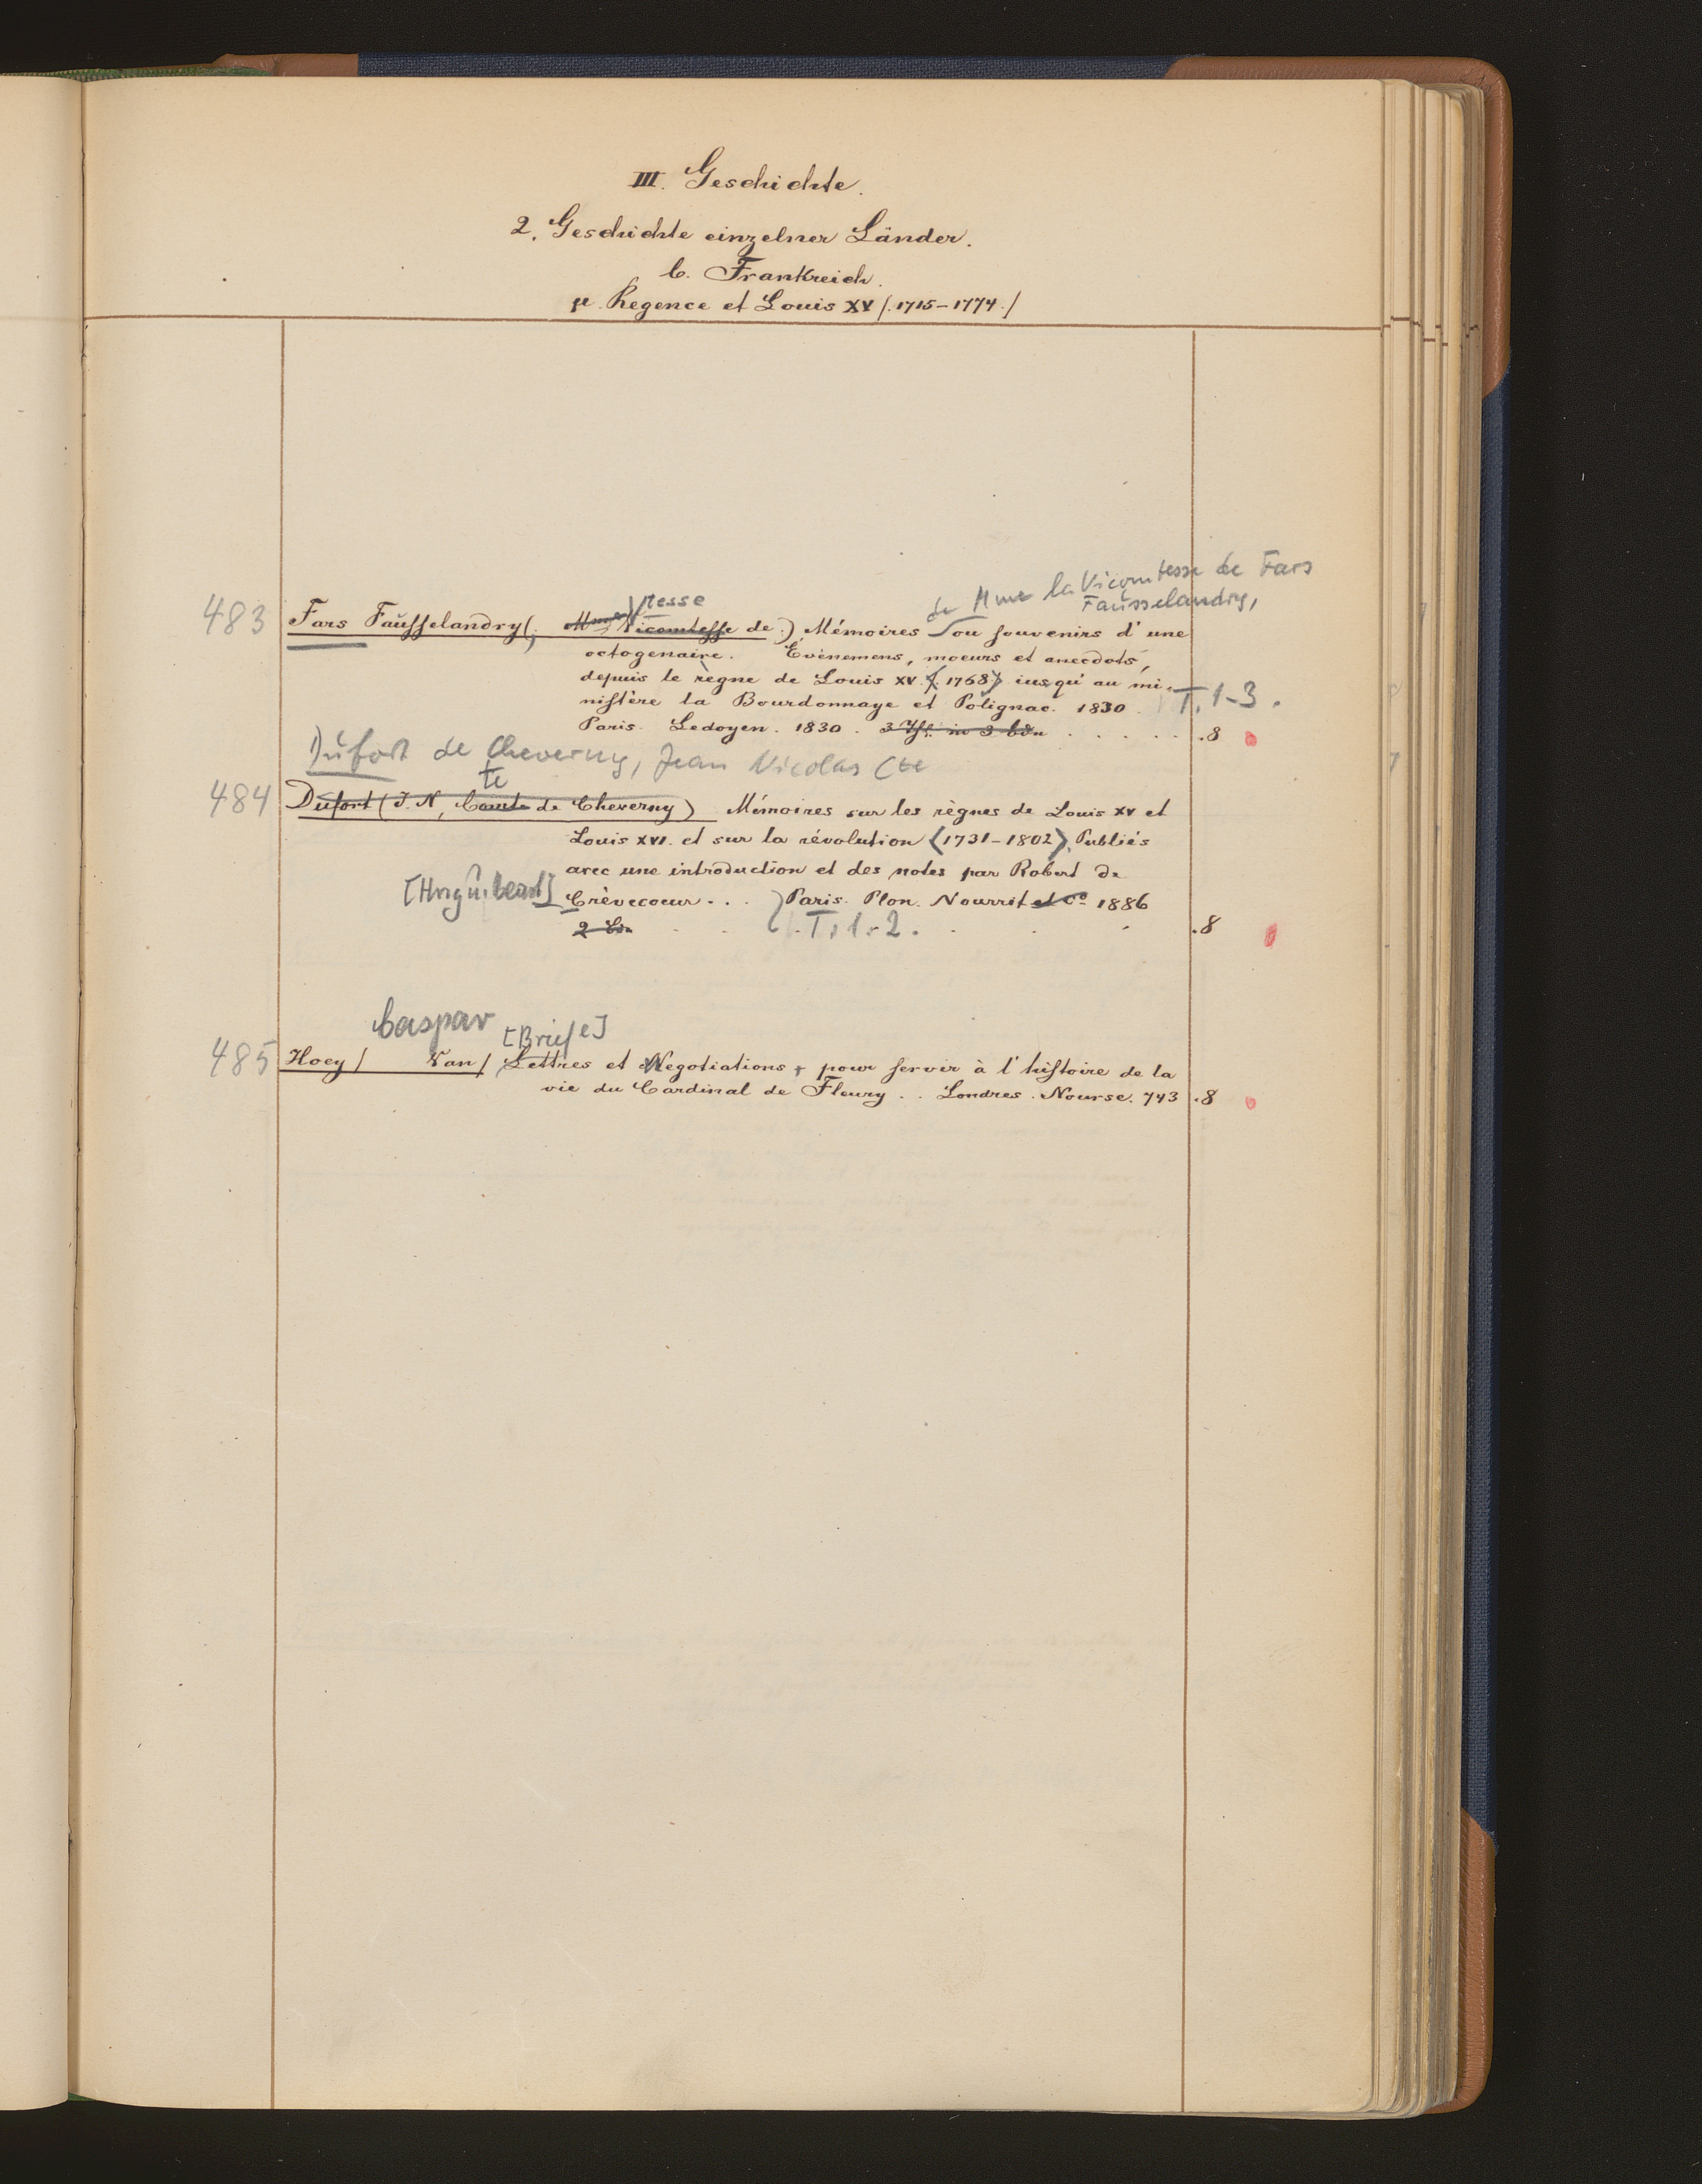 III. Geschichte.
2. Geschichte einzelner Länder.
b. Frankreich.
μ Regence et Louis XV /.1715-1774./
de Mme la Vicomtesse de Fars
Faŭsselandry,
tesse
483 Fars Faŭsselandry (, Mme Vicomtesse de.) Mémoires ou souvenirs d'une
octogenaire. Evènemens, moeurs et anecdots,
depuis le règne de Louis XV <1768> iusqu'au mi-
nistère la Bourdonnaye et Polignac. 1830. T. 1-3.
Paris. Ledoyen. 1830. 3 in 3 bdn . . . . . .8
Dŭfort de Cheverny, Jean Nicolas Cte
te
484 Dufort (J. N, Comte de Cheverny) Mémoires sur les règnes de Louis XV et
Louis XVI. et sur la révolution <1731-1802>, Publiés
avec une introduction et des notes par Robert de
Crèvecoeur . . . Paris. Plon. Nourrit et Co 1886
2 Bdn . . T. 1. 2. . . .8
Caspar [Briefe]
485 Hoey / Van / Lettres et Negotiations, pour servir à l'histoire de la
vie du Cardinal de Fleury . . Londres. Nourse. 743 .8